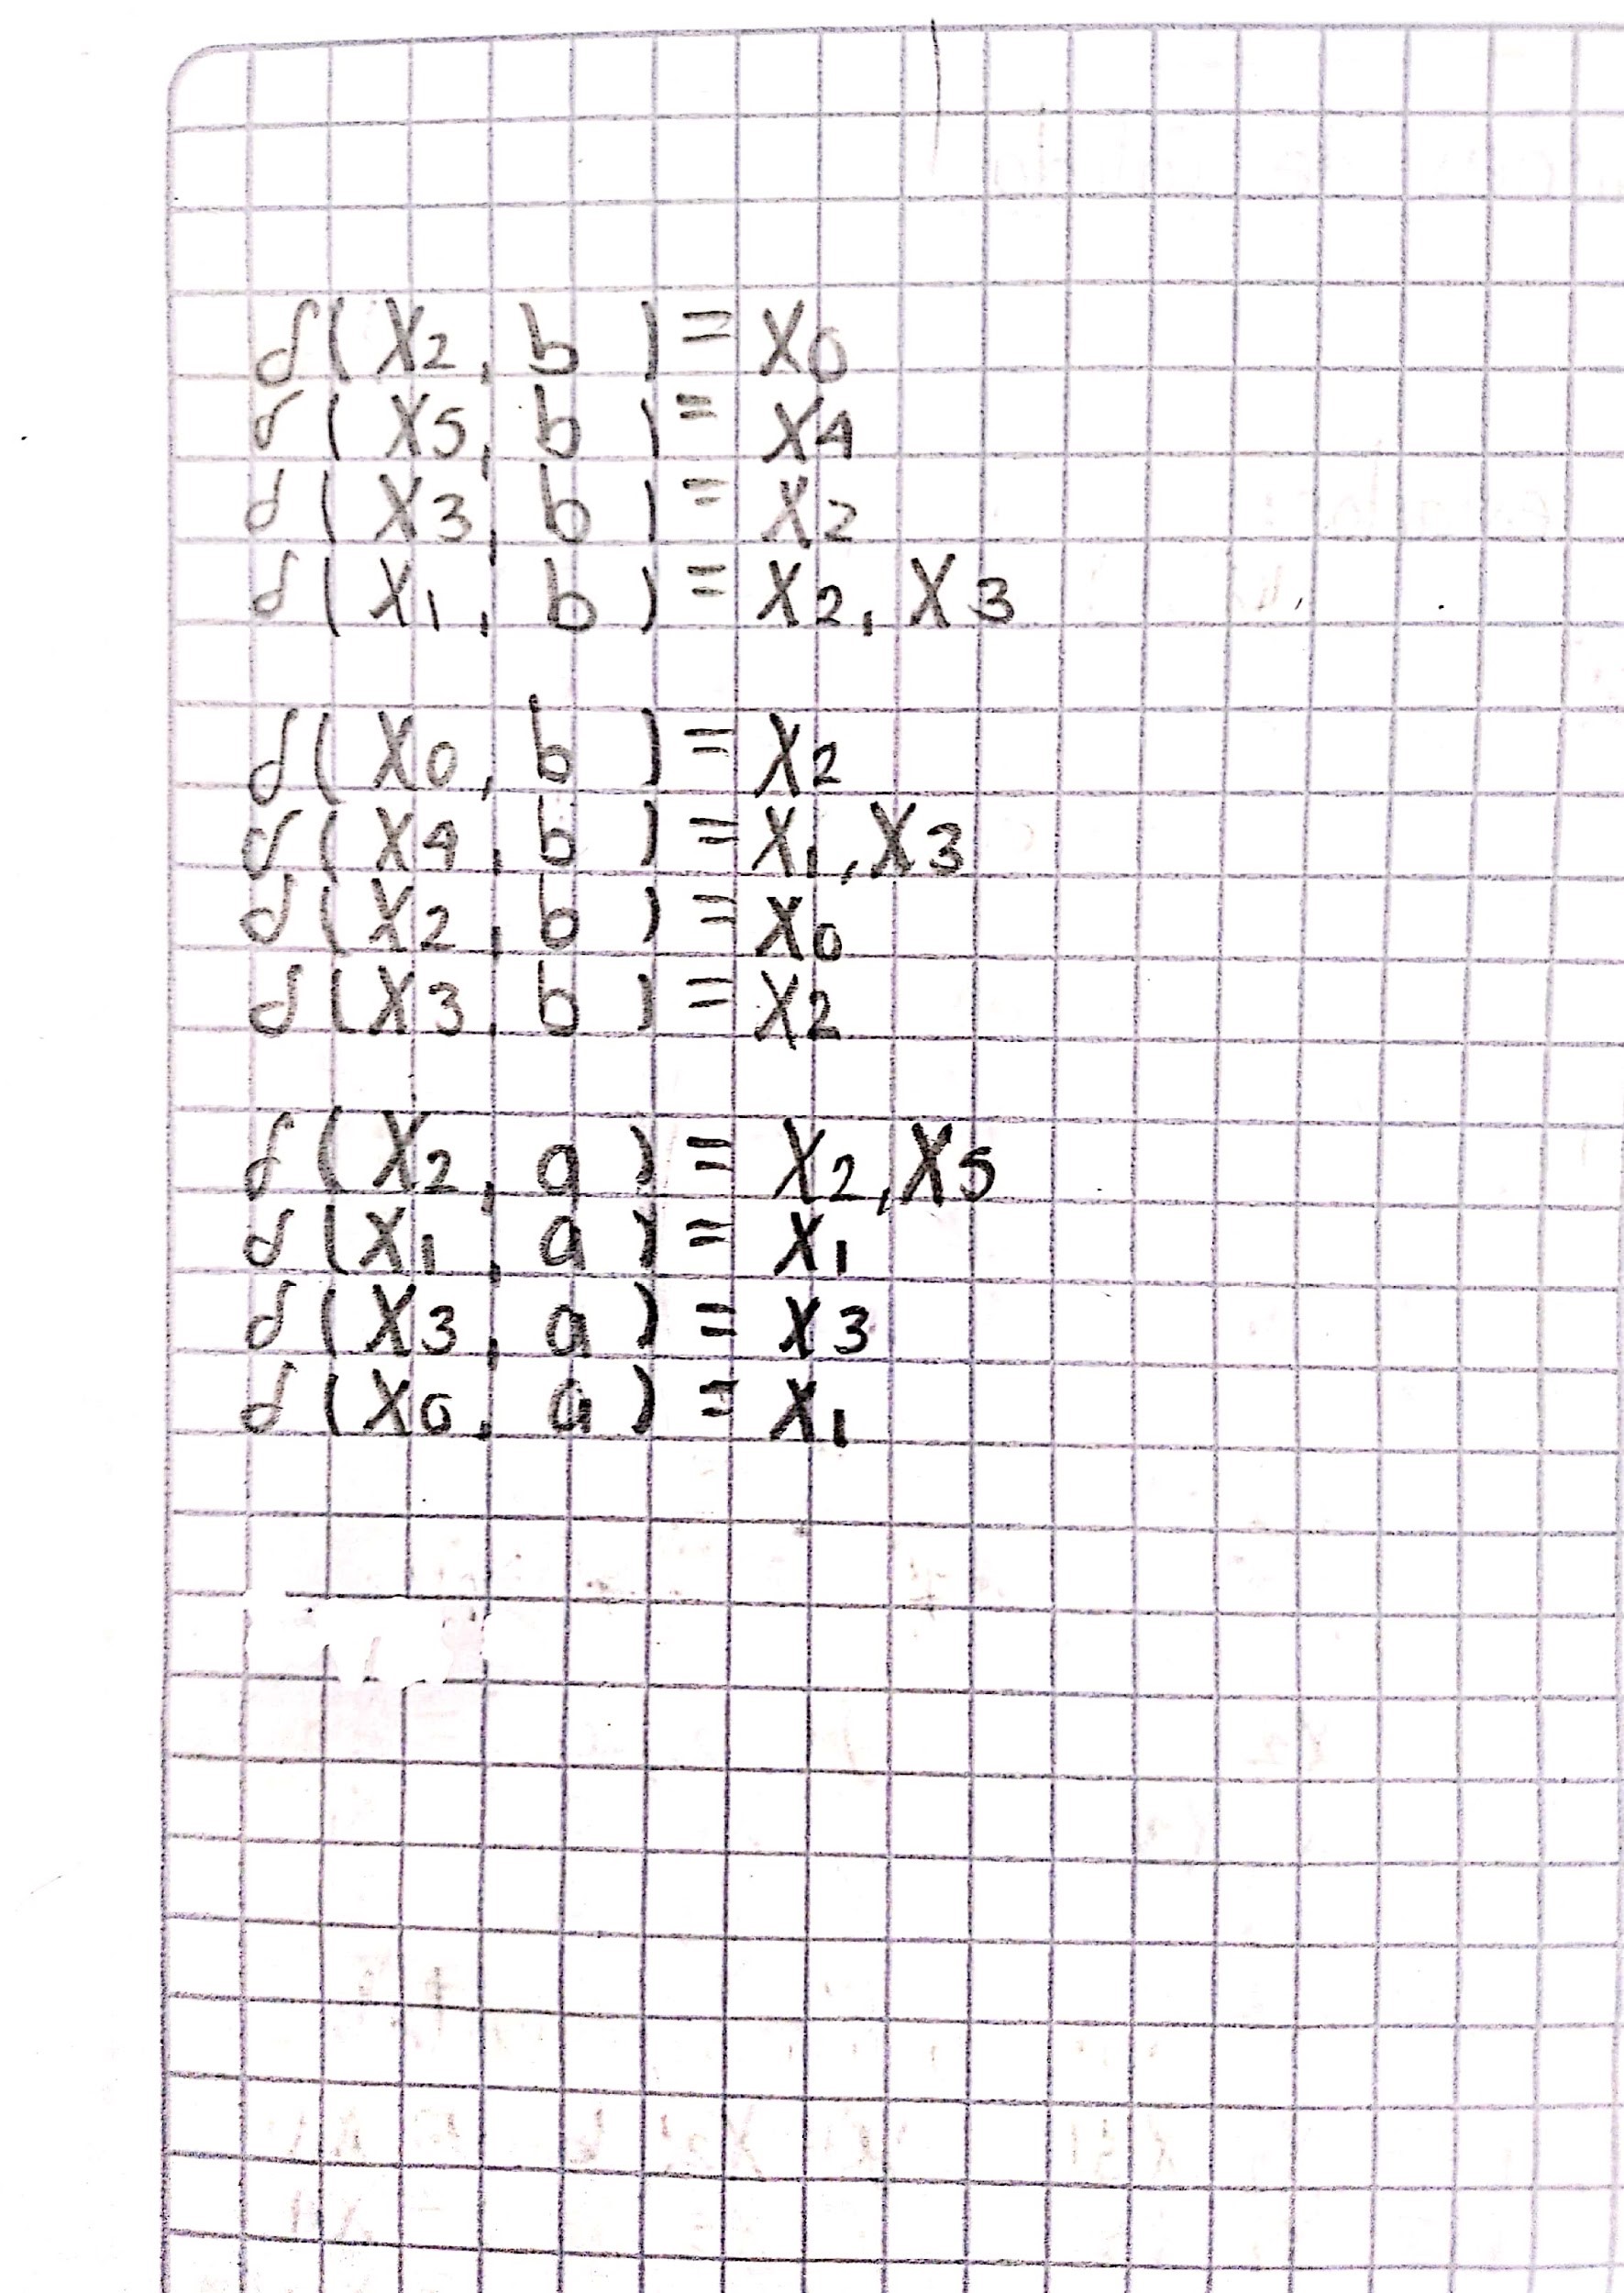 δ( X2, b ) = X0
δ( X5, b ) = X4
δ( X3, b ) = X2
δ( X1, b ) = X2, X3
δ( X0, b ) = X2
δ( X4, b ) = X1, X3
δ( X2, b ) = X0
δ( X3, b ) = X2
δ( X2, a ) = X2, X5
δ( X1, a ) = X1
δ( X3, a ) = X3
δ( X0, a ) = X1